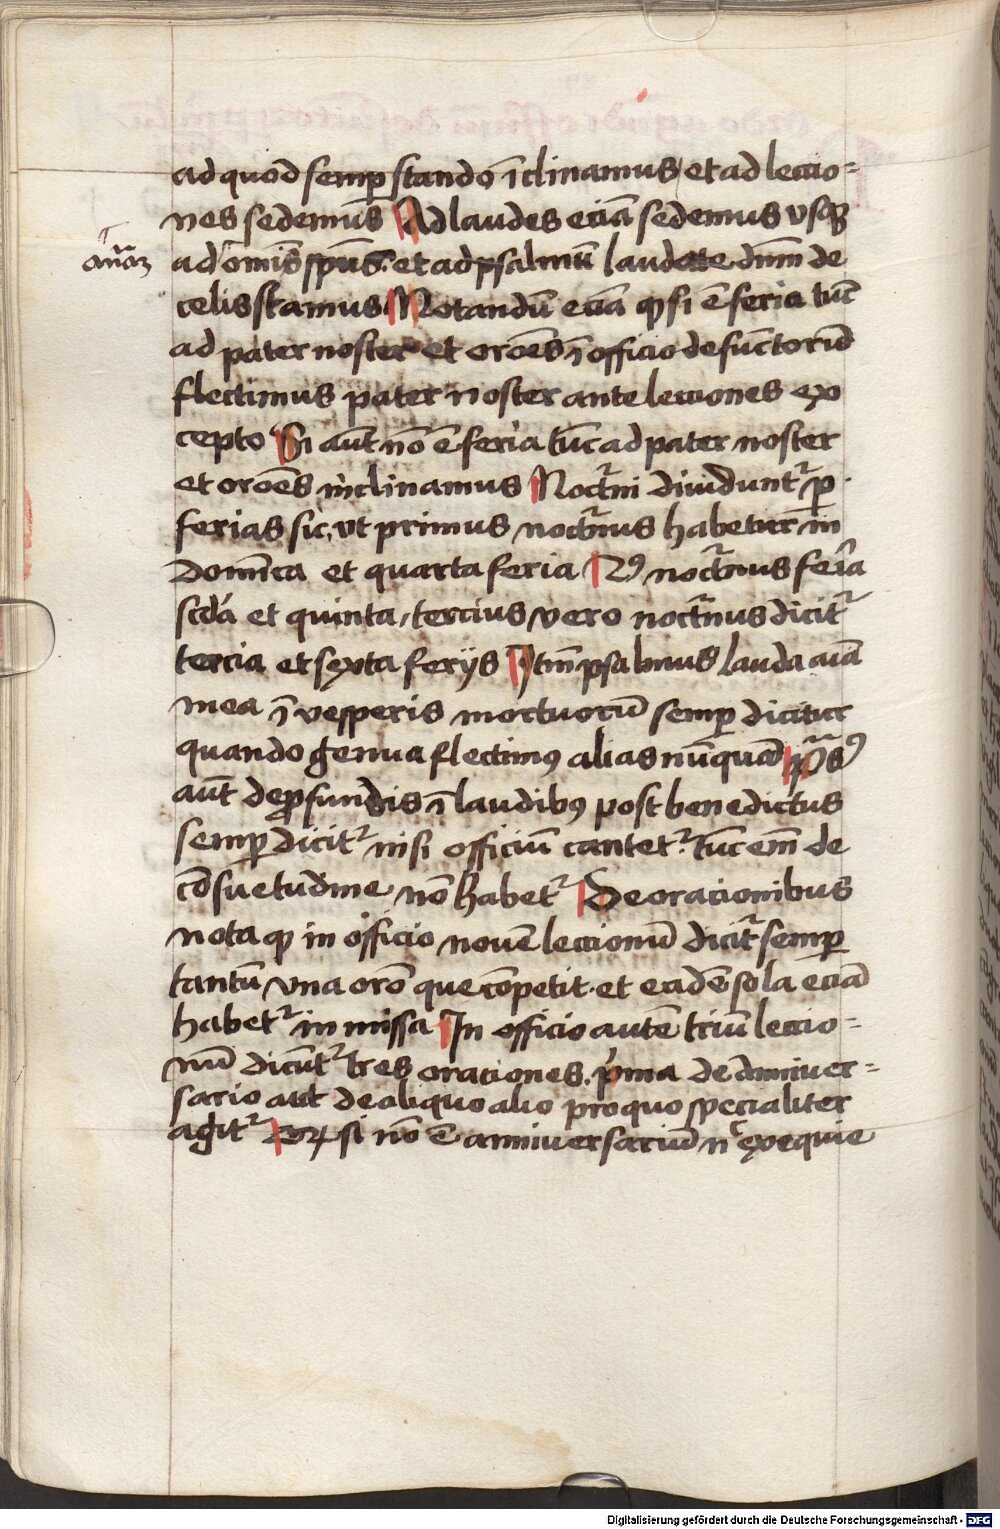 ad quod semꝑ stando ī clinamus et ad leccio=
nes sedemus Ad laudes eciā sedemus vsqꝫ
ad om̄is spūs. et ad psalmū laudate dnm̄ de
celis stamus Notandū eciā ꝙ si ē feria tūc
ad pater noster et orōes ī officio defūctorum̄
flectimus pater noster ante lecciones ex
cepto Si aūt nō ē feria tūc ad pater noster
et orōes inclinamus Noctr̄ni diuidunt᷑ ꝑ
ferias sic, vt primus noctr̄nus habetur in
domīca et quarta feria 2ꝰ noctr̄nus feria
scd̄a et quinta, tercius vero noctr̄nus dicit᷑
tercia et sexta ferijs Itm̄ psalmus lauda aīa
mea ī vesperis mortuorū semꝑ dicitur
quando genua flectimꝰ alias nūquā pōsꝰ
aūt de ꝓfundis ī laudibꝰ post benedictus
semꝑ dicit᷑ nisi officiū cantet᷑. tūc em̄ de
cōsuetudine nō habet᷑ De oracionibus
nota ꝙ in officio nouē leccionū dicit᷑ semꝑ
tantū vna orō que cōpetit. et eadē sola eciā
habet᷑ in missa In officio autē triū leccio=
nū dicūt᷑ tres oraciones. p̄ma de anniuer=
sario aut de aliquo alio pro quo specialiter
agit᷑ vel si nō ē anniuersariū nc̄ exequie
Digitalisierung gefördert durch die Deutsche Forschungsgemeinschaft - DFG